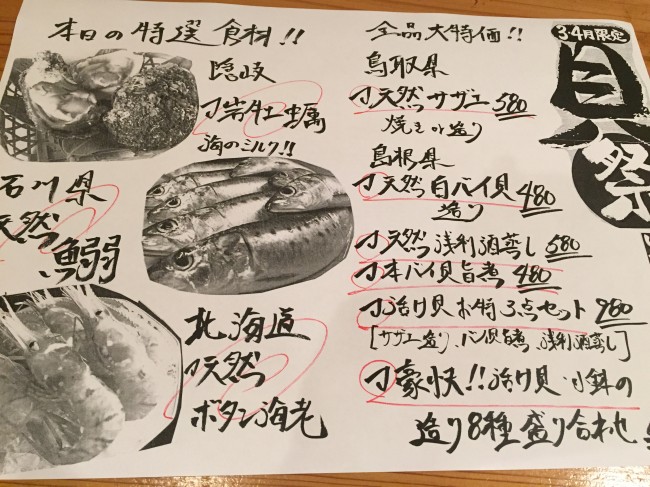 本日の特選食材!!
隠岐
岩牡蠣
海のミルク!!
石川県
天然
鰯
北海道
天然
ボタン海老
全品大特価!!
鳥取県
天然サザエ 580
焼き or 造り
島根県
天然白バイ貝 480
造り
天然浅利酒蒸し 580
本バイ貝旨煮 480
活け貝お得3点セット 980
[サザエ造り、バイ貝旨煮、浅利酒蒸し]
豪快!!活け貝・小鉢の
造り8種盛り合わせ
3・4月限定
貝祭